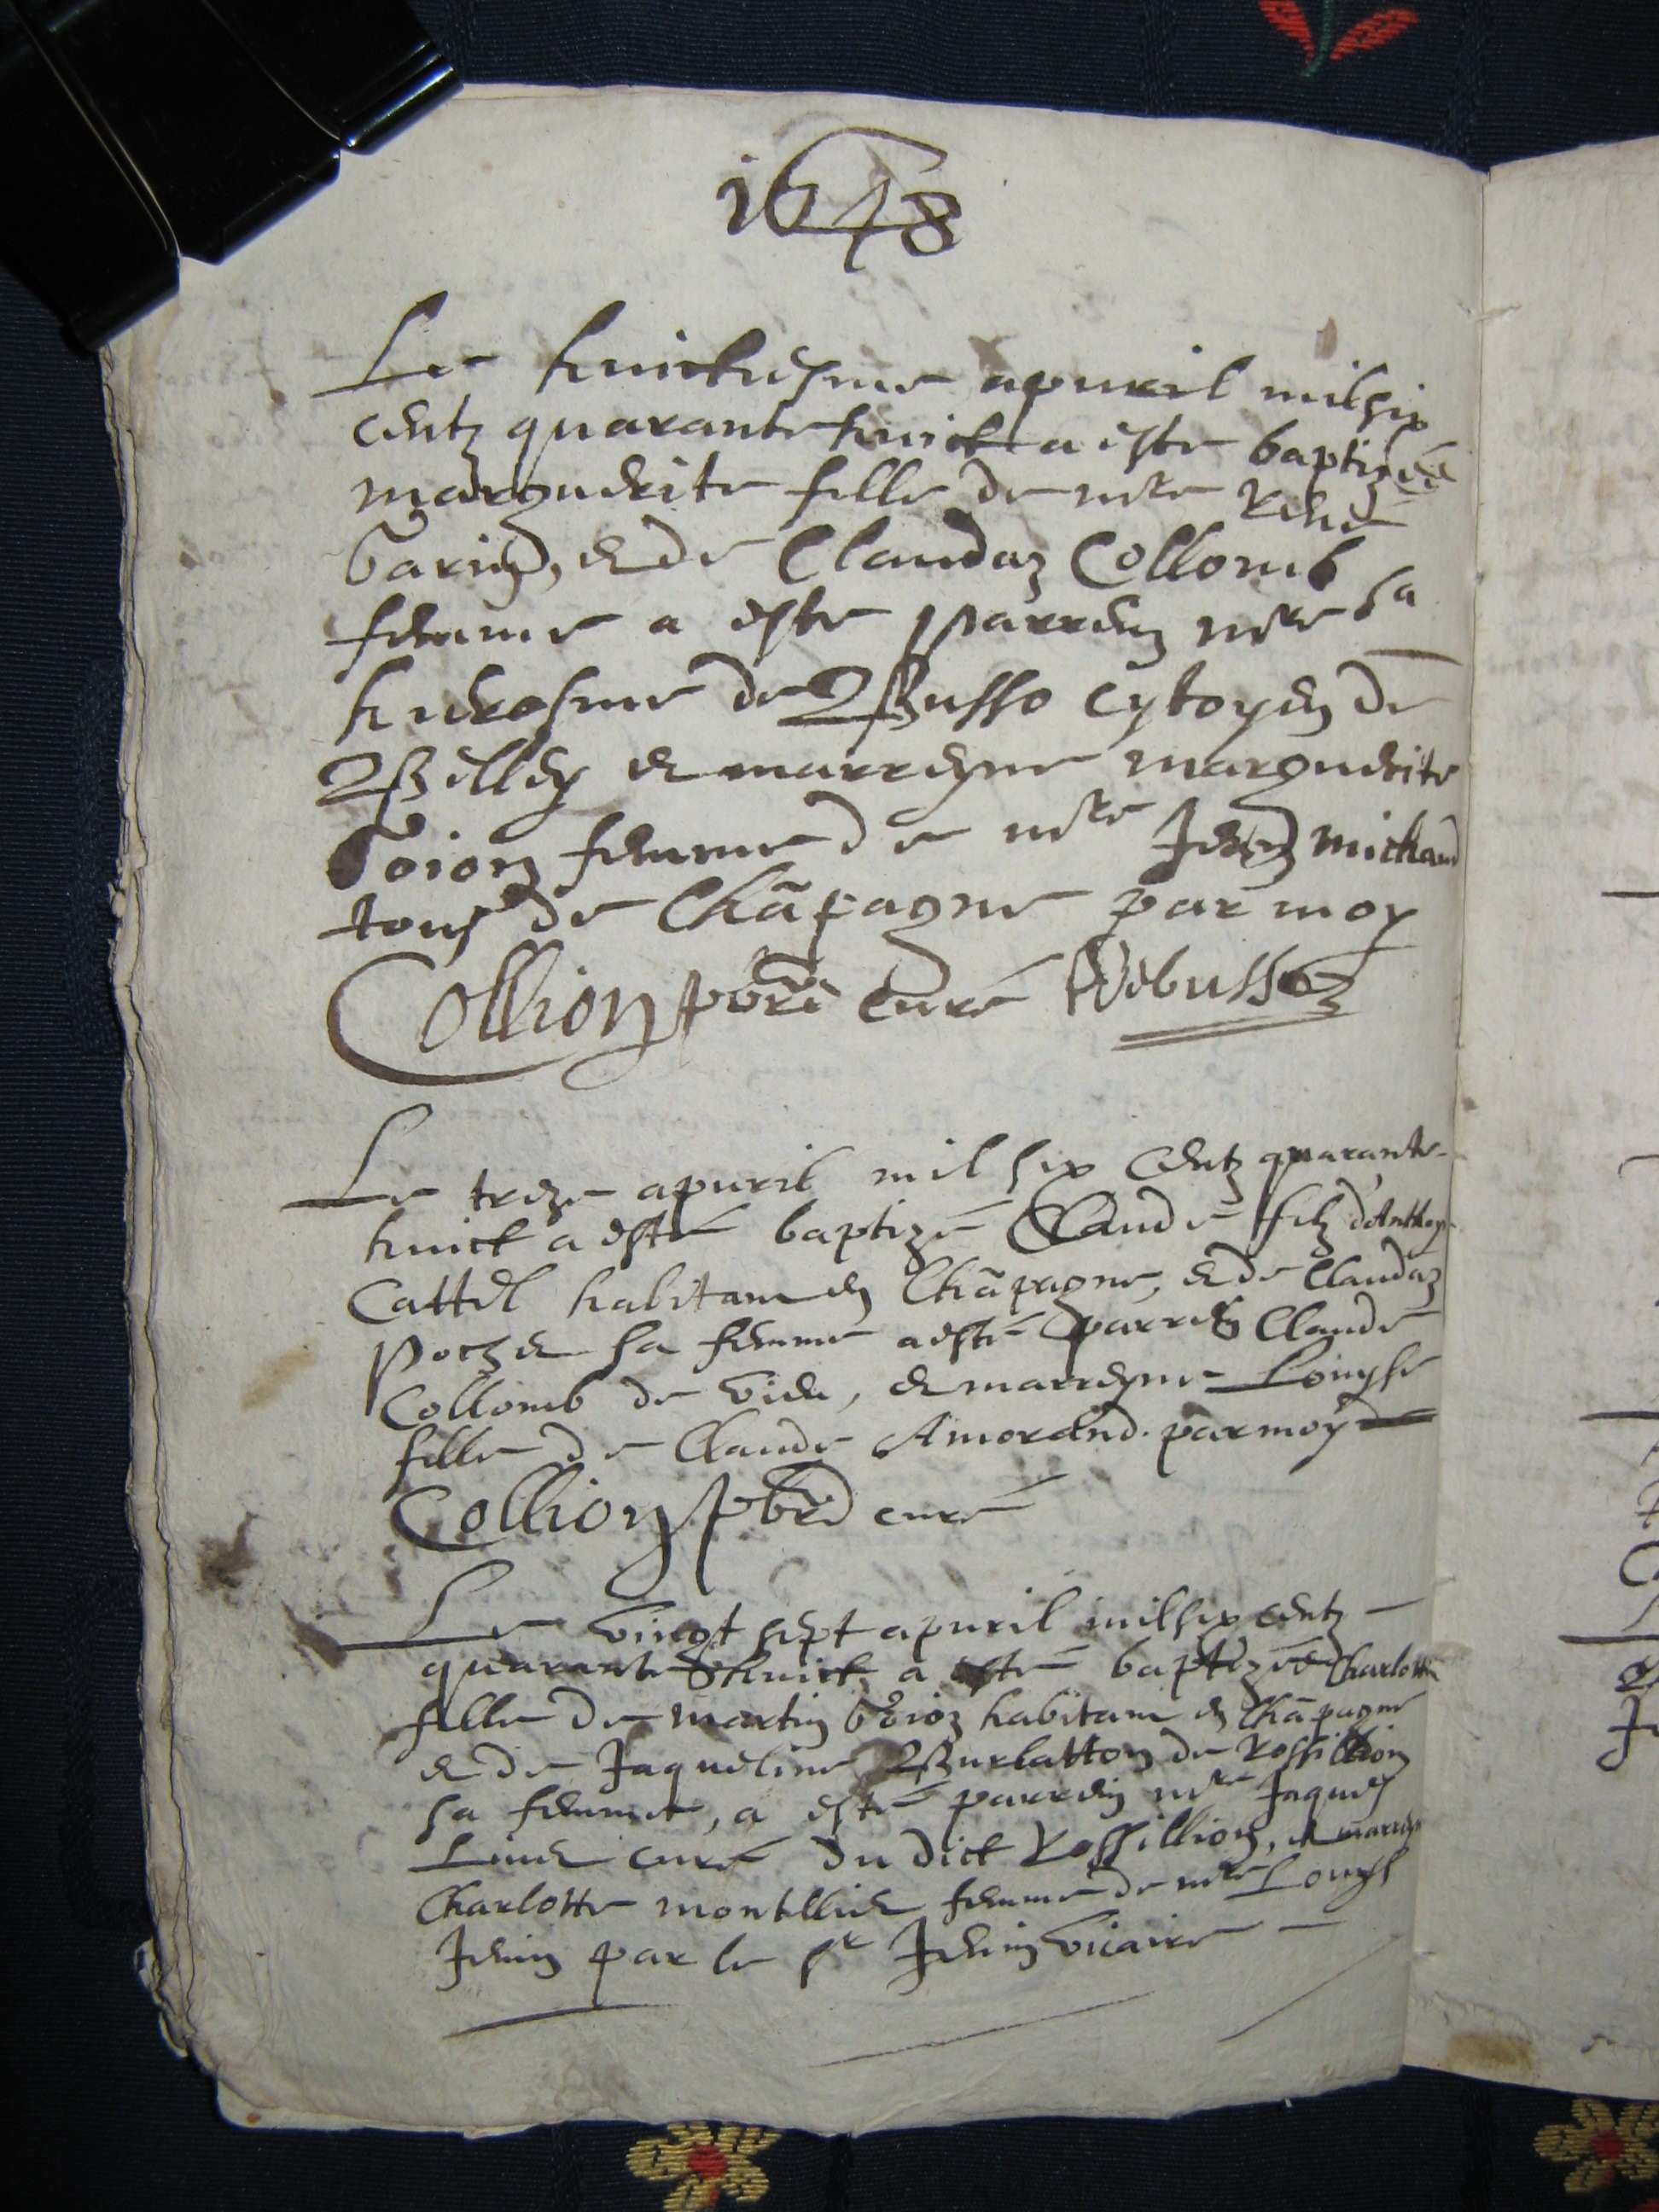 1648
Le huictiesme apuril mil six
centz quarante huict a este baptizée
marguerite fille de mre René
Varin, et de Claudaz Collomb sa
femme a este parrein mre
hierosme de Busso cytoyen de
Belley et marreyne marguerite
femme de mre Jean michaud
tous de Chãpagne par moy
Collion pbre curé Debusso
Le treze apuril mil six centz quarante
huict a esté baptizé Claude filz d'Anthoy
Cattel habitant en Chãpagne, et de Claudaz
Pochet sa femme a esté parrein Claude
Collomb de vieu, et marreyne Louyse
fille de Claude Amorand. par moy
Collion pbre curé
Le vingt sept apuril mil six centz
quarante huict a esté baptizée Charlotte
fille de martin habitant en Chãpagne
et de Jaqueline Burlatton de Rossillion
sa femme, a esté parrein mre Jaques
curé du dict Rossillion, et marreyn
Charlotte montillier femme de mre Louys
Jenin par le sr Jenin vicaire